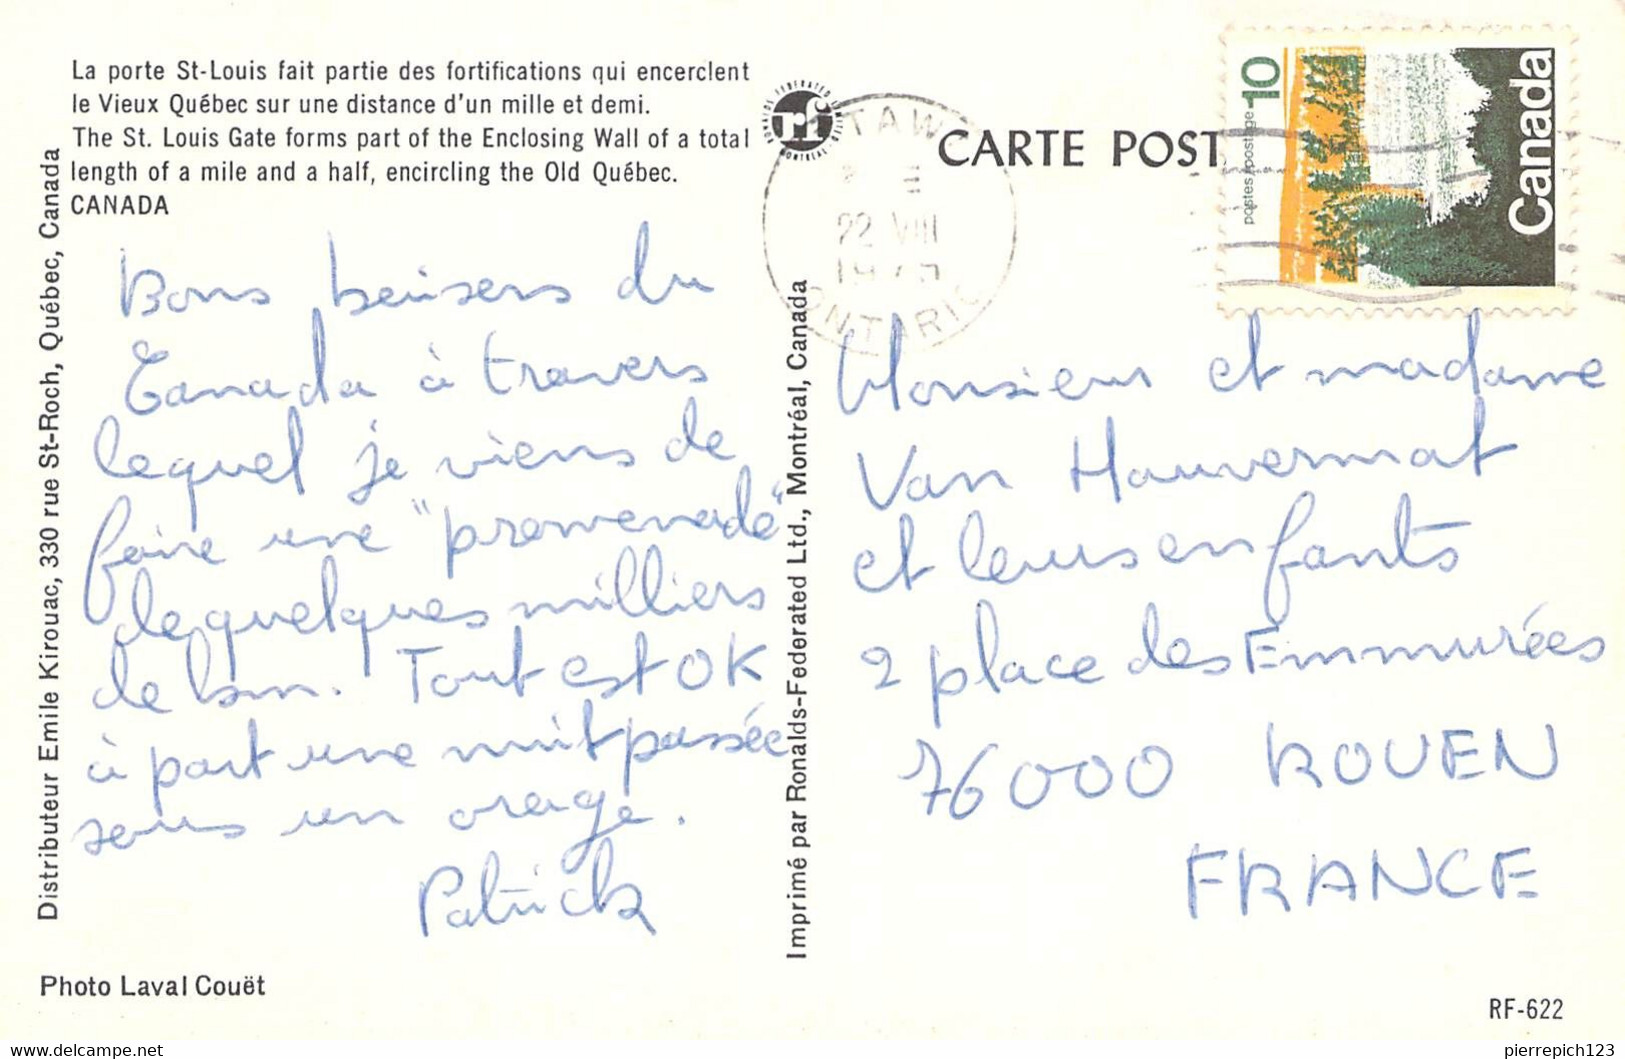 La porte St-Louis fait partie des fortifications qui encerclent
le Vieux Québec sur une distance d'un mille et demi.
The St. Louis Gate forms part of the Enclosing Wall of a total
length of a mile and a half, encircling the Old Québec.
CANADA
Bons baisers du
Canada à travers
lequel je viens de
faire une "promenade"
de quelques milliers
de km. Tout est OK
à part une nuit passée
sous un orage.
Patrick
Photo Laval Couët
Distributeur Emile Kirouac, 330 rue St-Roch, Québec, Canada
Imprimé par Ronalds-Federated Ltd., Montréal, Canada
rf
MONTREAL
22 VIII
ONTARIO
CARTE POST
10
postes/postage
Canada
Monsieur et madame
Van Hauvermat
et leurs enfants
2 place des Emmurées
76000 ROUEN
FRANCE
RF-622
pierrepich123